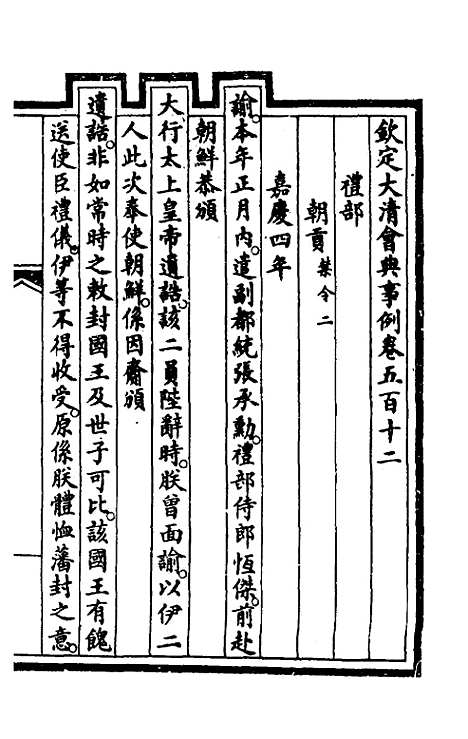 欽定大清會典事例卷五百十二
禮部
朝貢 禁令二
嘉慶四年
諭。本年正月內。遣副都統張承勳。禮部侍郎恆傑。前赴
朝鮮恭頒
大行太上皇帝遺誥。該二員陛辭時。朕曾面諭。以伊二
人此次奉使朝鮮。係因齎頒
遺誥。非如常時之敕封國王及世子可比。該國王有餽
送使臣禮儀。伊等不得收受。原係朕體恤藩封之意。